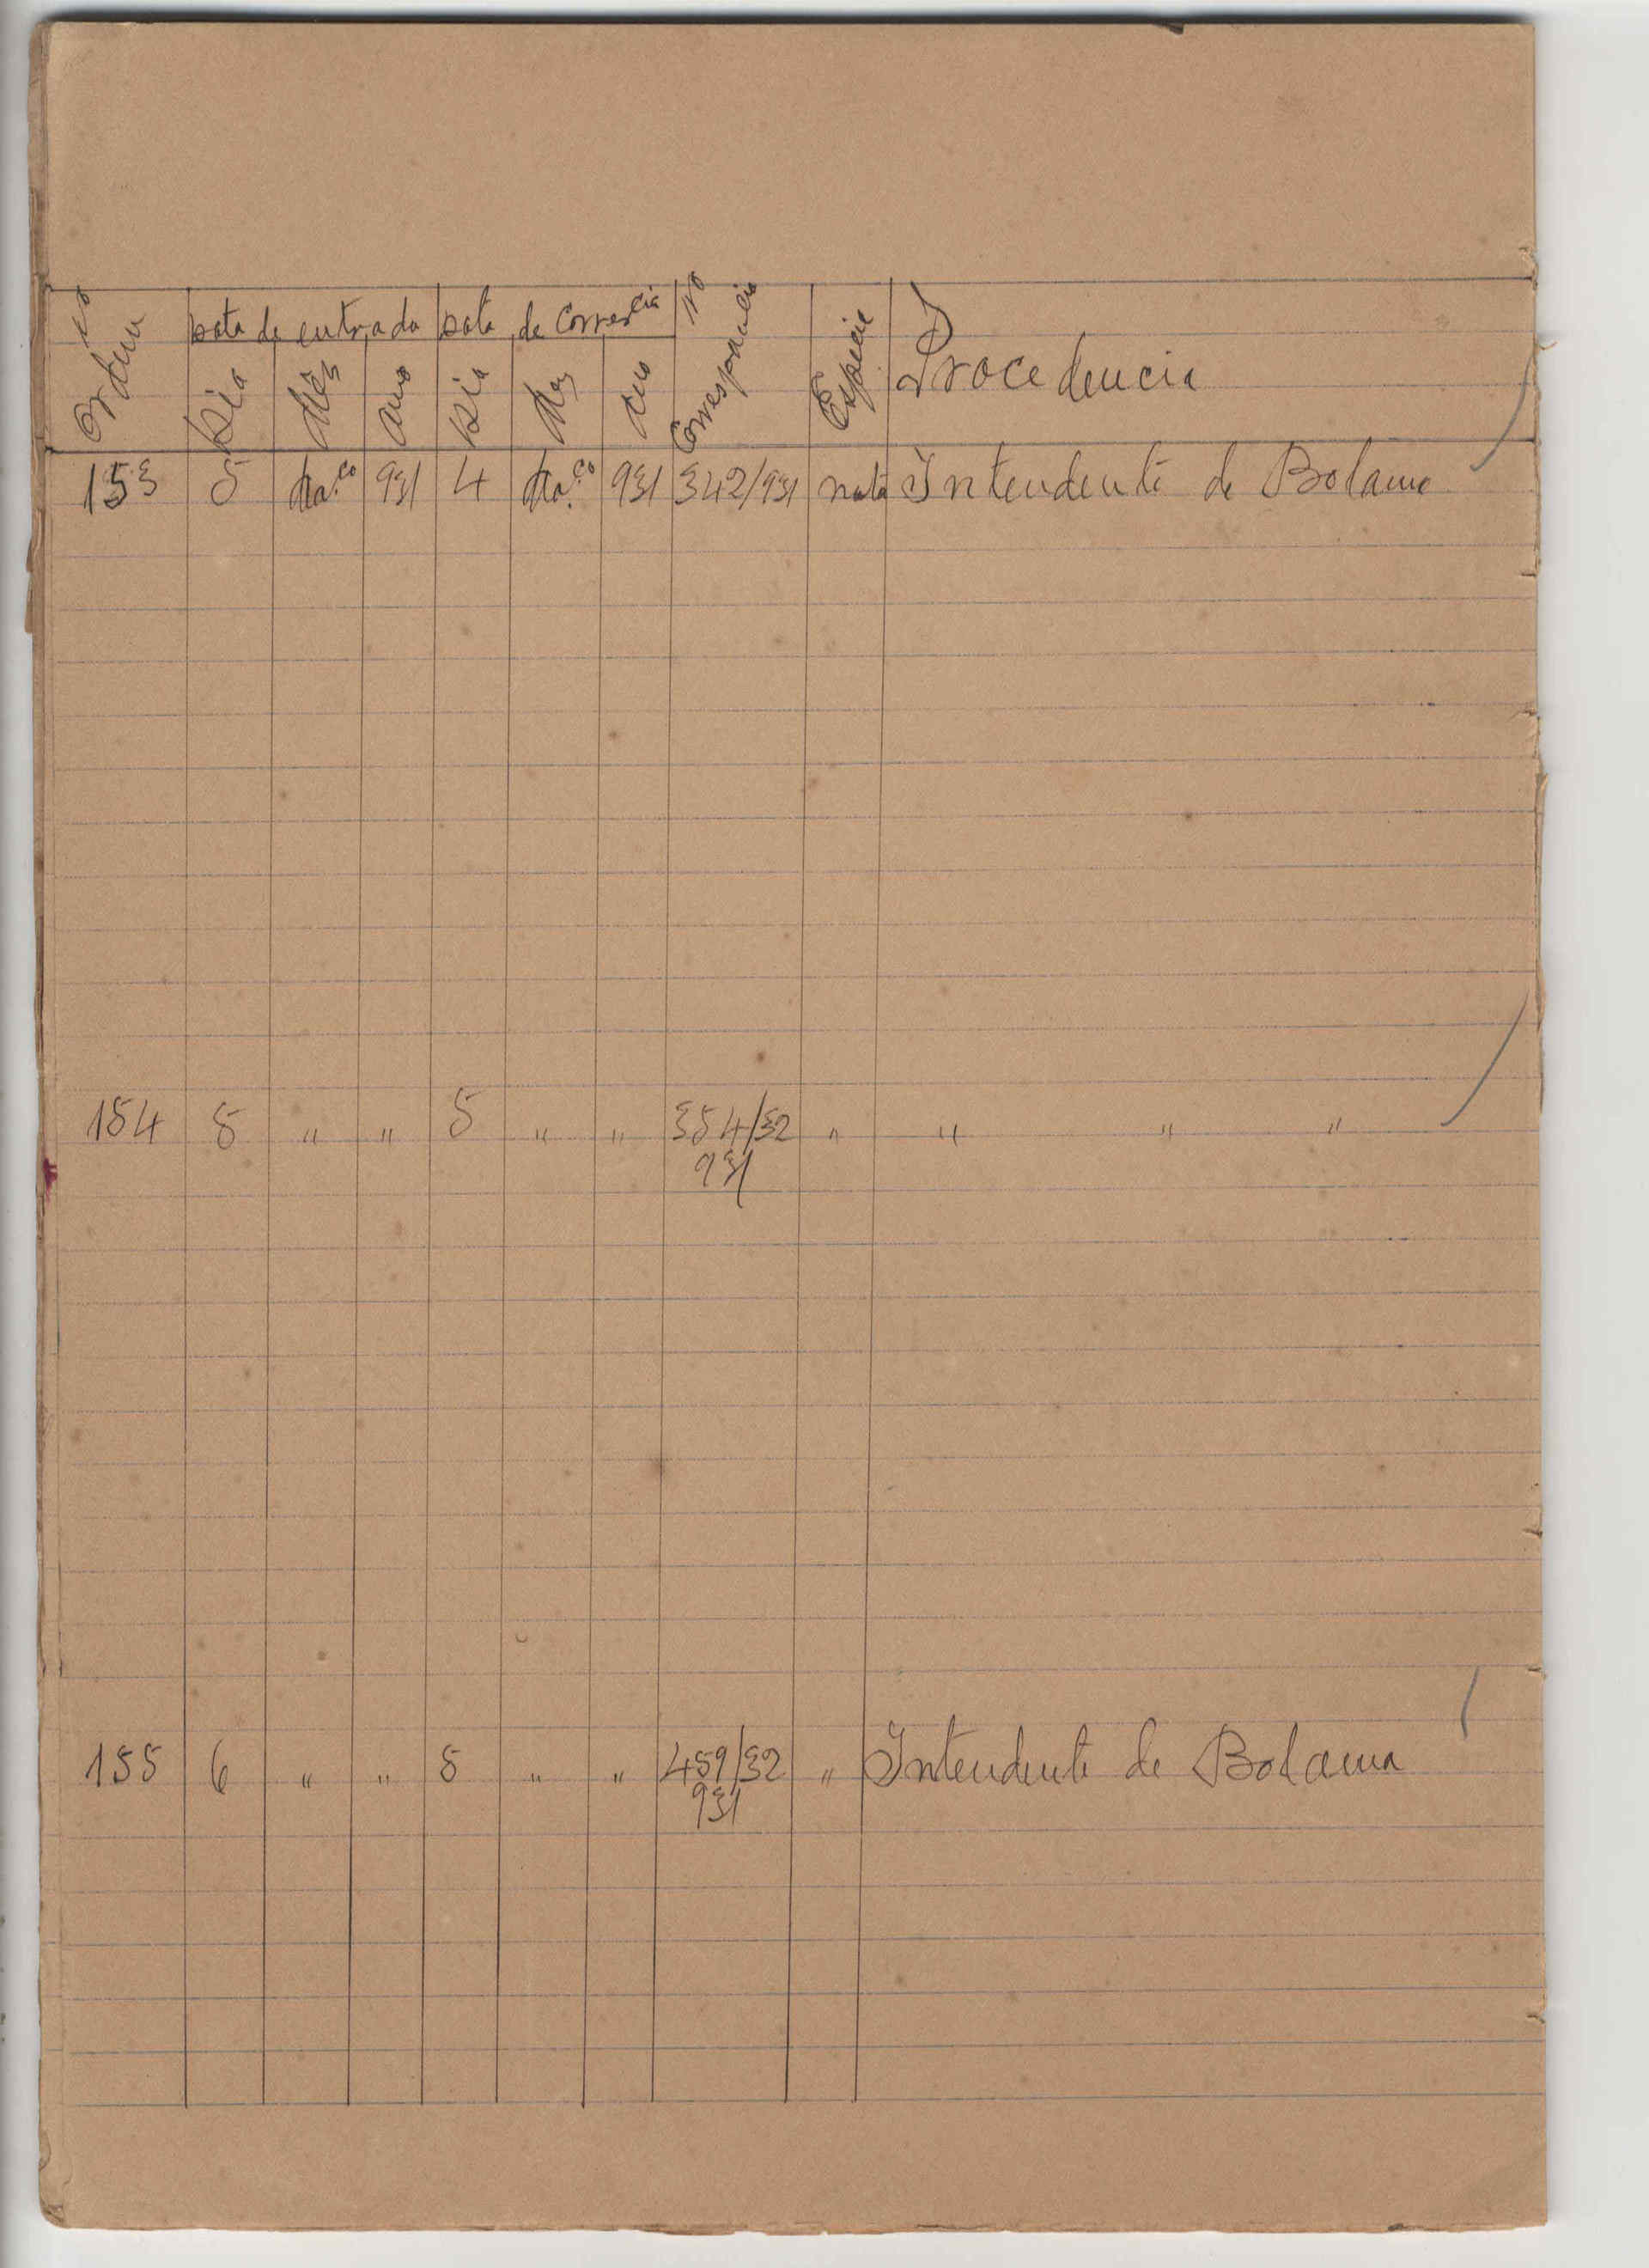 Nº Ordem Data de entrada Data de Corresᶜⁱᵃ Nº Correspondencia Especie Procedencia
Dia Mês Ano Dia Mês Ano
153 5 Mar.ço 931 4 Mar.ço 931 342/931 nota Intendente de Bolama
154 5 " " 5 " " 354/32 " " " "
931
155 6 " " 5 " " 459/32 " Intendente de Bolama
931